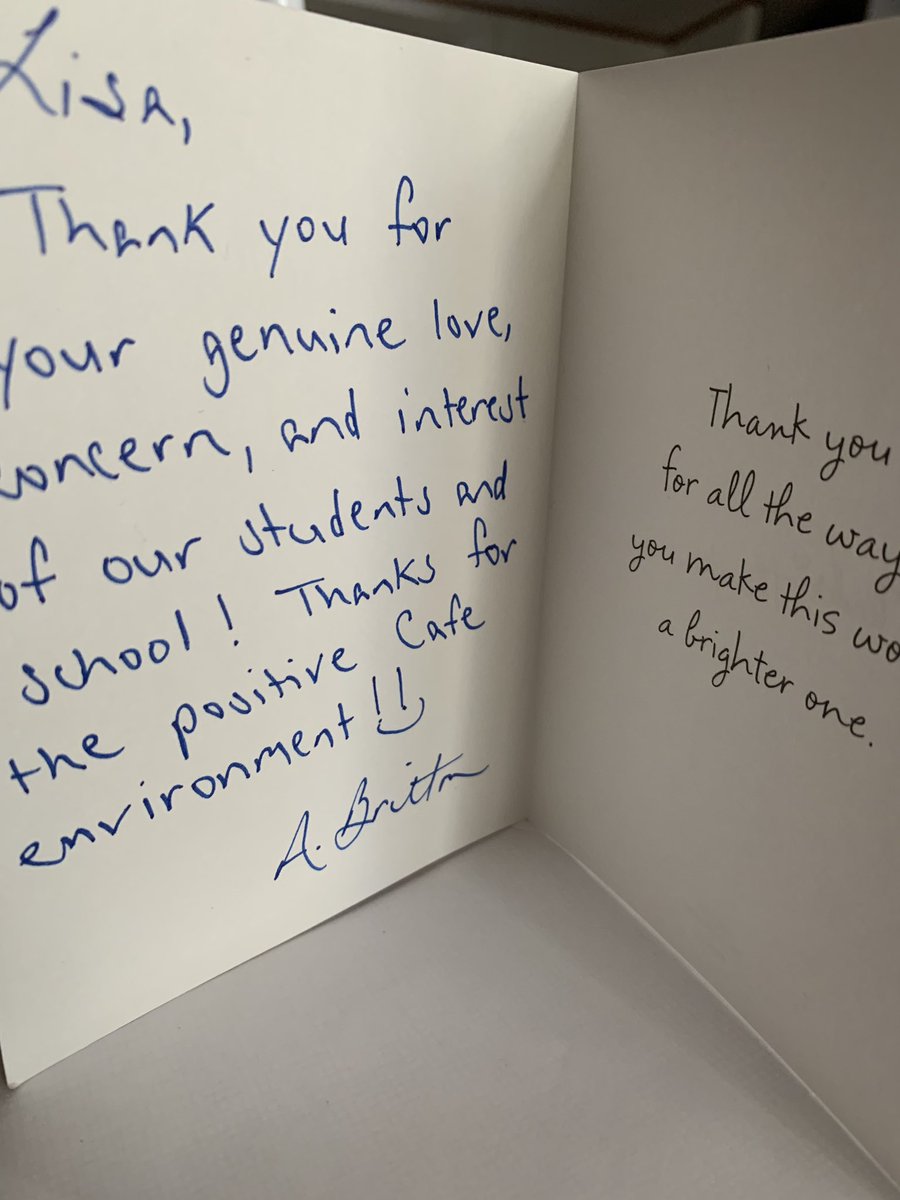 Lisa,
Thank you for
your genuine love,
concern, and interest
of our students and
school! Thanks for
the positive Cafe
environment!!
A. Britton
Thank you
for all the way
you make this wo
a brighter one.